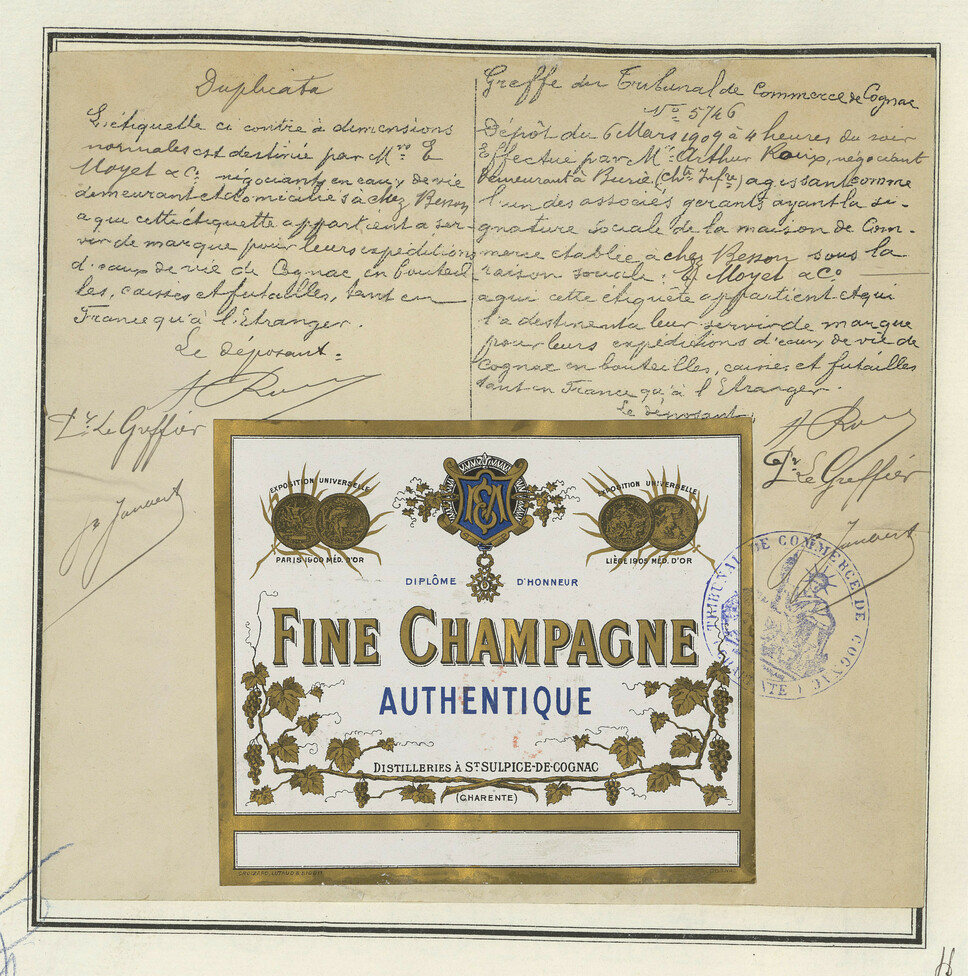 Duplicata
L'étiquette ci contre à dimensions
normales est destinée par Mrs E
Moyet & Co. négociants en eaux de vie
demeurant et domiciliés à chez Besson
a qui cette étiquette appartient a ser-
vir de marque pour leurs expéditions
d'eaux de vie de Cognac en bouteil
les, caisses et futailles, tant en
France qu'à l'Etranger.
Le déposant:
A Roux
Pr. Le Greffier
Jaubert
Greffe du Tribunal de Commerce de Cognac
No 5746
Dépôt du 6 Mars 1909 à 4 heures du soir
Effectué par Mr. Arthur Roux, négociant
demeurant à Burie (Chte Infre) agissant comme
l'un des associés gérants ayant la si-
gnature sociale de la maison de Com-
merce établie à chez Besson sous la
raison sociale: E Moyet & Co
a qui cette étiquête appartient et qui
l'a destinent a leur servir de marque
pour leurs expéditions d'eaux de vie de
Cognac en bouteilles, caisses et futailles
tant en France qu'à l'Etranger.
Le déposant,
A Roux
Pr Le Greffier
Jaubert
TRIBUNAL DE COMMERCE DE COGNAC (CHARENTE)
EXPOSITION UNIVERSELLE
PARIS 1900 MÉD. D'OR
EXPOSITION UNIVERSELLE
LIÈGE 1905 MÉD. D'OR
DIPLÔME D'HONNEUR
FINE CHAMPAGNE
AUTHENTIQUE
DISTILLERIES À ST SULPICE-DE-COGNAC
(CHARENTE)